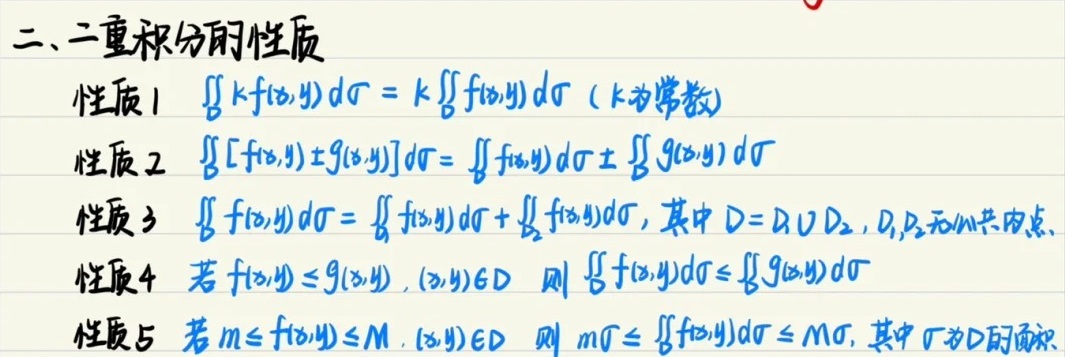 二、二重积分的性质
性质1 ∬_D kf(x,y)dσ = k∬_D f(x,y)dσ (k为常数)
性质2 ∬_D [f(x,y)±g(x,y)]dσ = ∬_D f(x,y)dσ ± ∬_D g(x,y)dσ
性质3 ∬_D f(x,y)dσ = ∬_D₁ f(x,y)dσ + ∬_D₂ f(x,y)dσ, 其中 D=D₁∪D₂, D₁,D₂无公共内点.
性质4 若 f(x,y)≤g(x,y), (x,y)∈D 则 ∬_D f(x,y)dσ ≤ ∬_D g(x,y)dσ
性质5 若 m≤f(x,y)≤M, (x,y)∈D 则 mσ ≤ ∬_D f(x,y)dσ ≤ Mσ, 其中 σ为D的面积